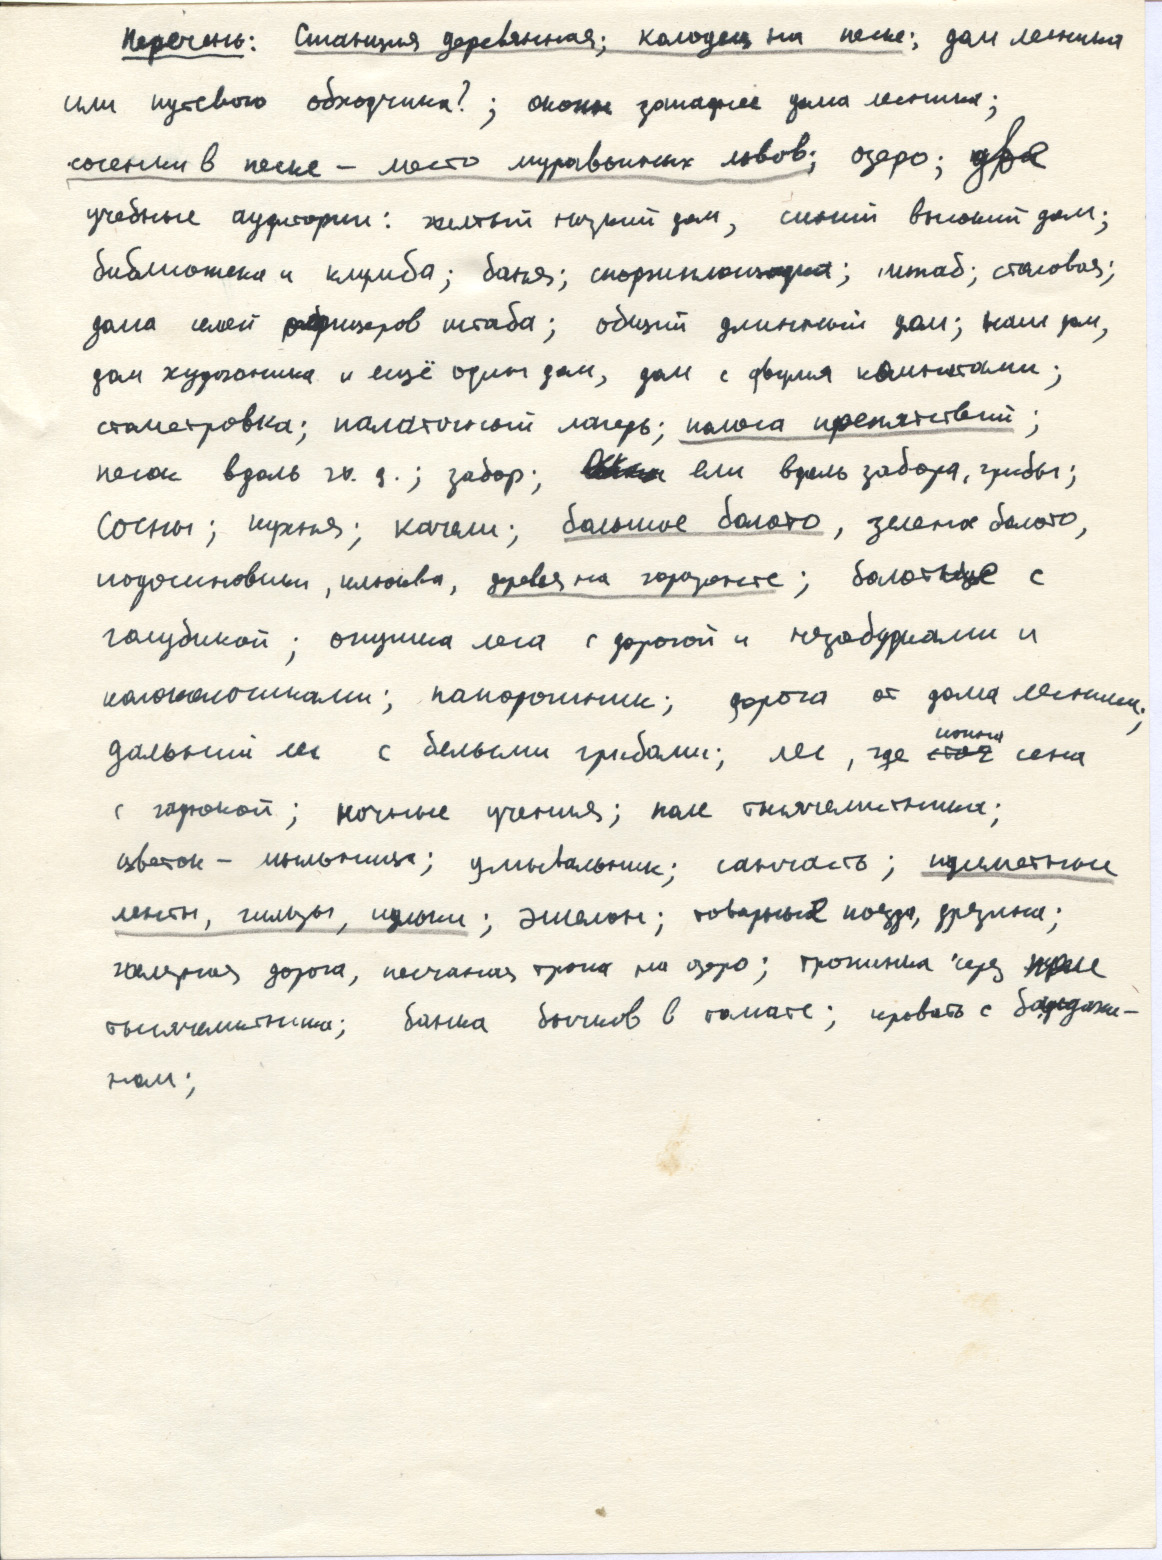 Перечень: Станция деревянная; колодец на песке; дом лесника
или путевого обходчика?; окопы западнее дома лесника;
сосенки в песке – место муравьиных львов; озеро; две
учебные аудитории: желтый низкий дом, синий высокий дом;
библиотека и клумба; баня; спортплощадка; штаб; столовая;
дома семей офицеров штаба; общий длинный дом; наш дом,
дом художника и ещё один дом, дом с двумя комнатами;
стометровка; палаточный лагерь; полоса препятствий;
песок вдоль ж. д.; забор; ели вдоль забора, грибы;
Сосны; кухня; качели; большое болото, зелень болото,
подосиновики, клюква, деревья на горизонте; болотце с
голубикой; опушка леса с дорогой и незабудками и
колокольчиками; папоротник; дорога от дома лесника;
дальний лес с белыми грибами; лес, где стог копна сена
с горкой; ночные учения; поле тысячелистника;
цветок – мыльница; умывальник; санчасть; пулеметные
ленты, гильзы, ; эшелон; товарные поезда, дрезина;
железная дорога, песчаная тропа на озеро; тропинка через поле
тысячелистника; банка бычков в томате; кровать с балдахи-
ном;